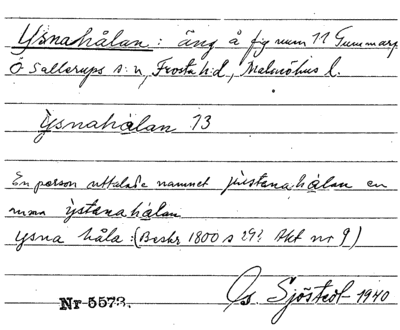 Ysnahålan: äng å fig num 11 Gummarp
Ö Sallerups s:n, Frosta h:d, Malmöhus l.
Ysnahålan 13
En person uttalade namnet jùstanahálan en
annan ỳstanahálan
Ysna håla: (Beskr 1800 s 29? Akt nr 9)
Nr 5573.
Gs. Sjöstedt 1940